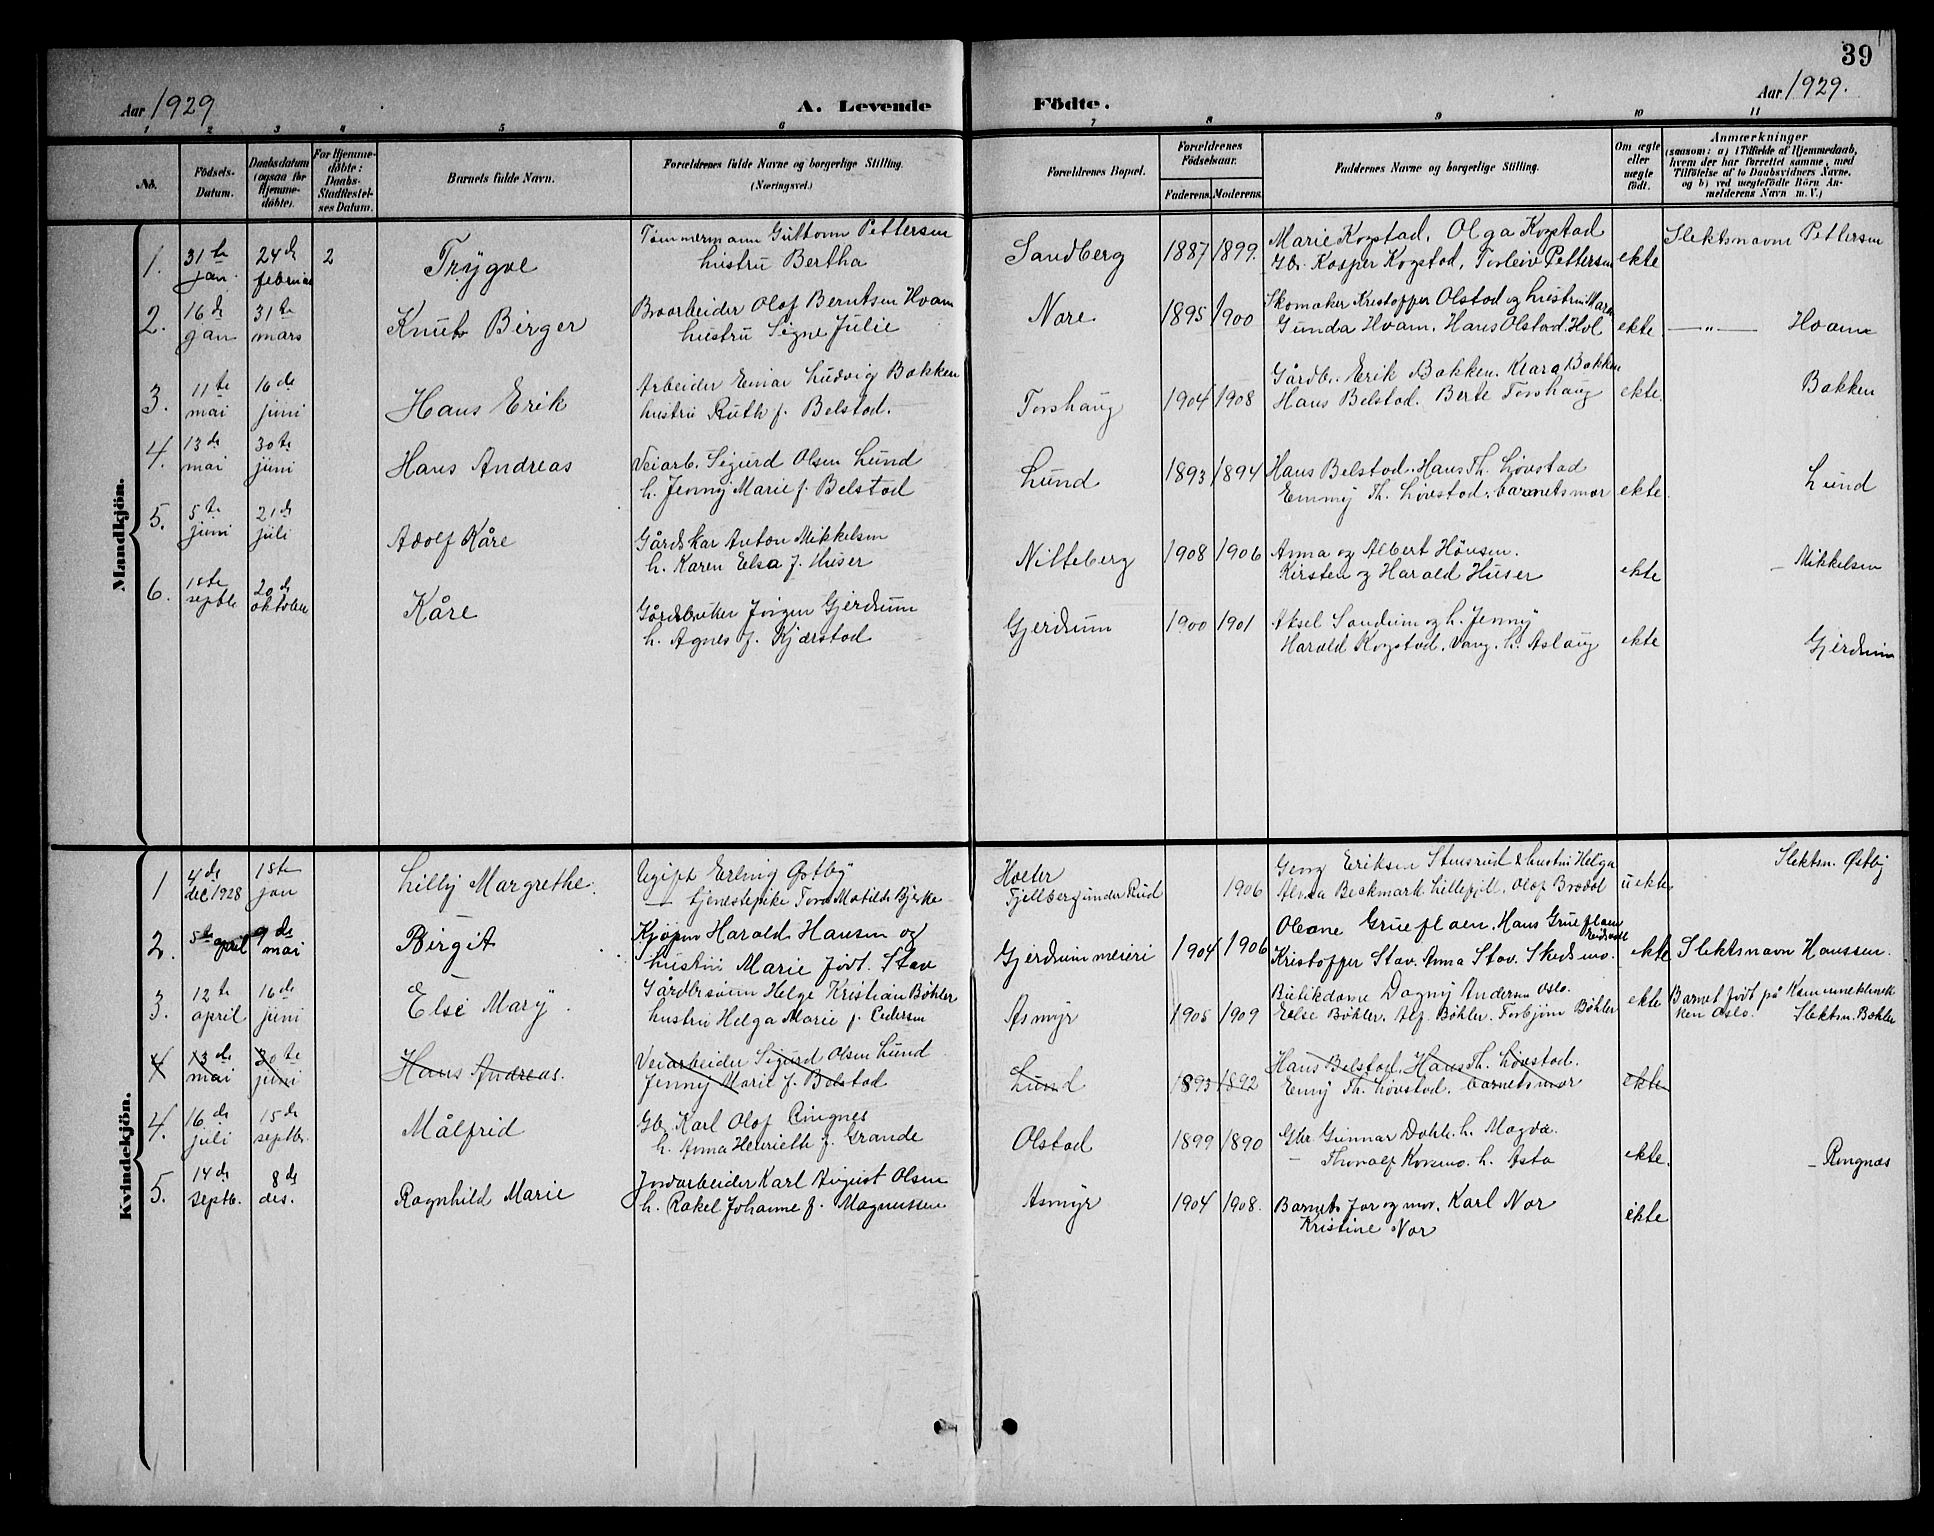 39
Aar 1929 A. Levende Födte. Aar 1929.
1 2 3 4 5 6 7 8 9 10 11
No.
Födsels-
Datum.
Daabsdatum
(ogsaa for
Hjemme-
döbte).
For Hjemme-
döbte:
Daabs-
Stadfæstel-
ses Datum.
Barnets fulde Navn.
Forældrenes fulde Navne og borgerlige Stilling.
(Næringsvei.)
Forældrenes Bopæl.
Forældrenes
Födselsaar.
Faderens. Moderens.
Faddernes Navne og borgerlige Stilling.
Om ægte
eller
uægte
födt.
Anmærkninger
(saasom: a) i Tilfælde af Hjemmedaab,
hvem der har forrettet samme, med
Tilföielse af to Daabsvidners Navne,
og b) ved uægtefödte Börn An-
melderens Navn m. V.)
Mandkjön.
1. 31te jan. 24de februar 2 Trygve
Tömmermann Guttorm Pettersen
hustru Bertha
Sandberg 1887 1899.
Marie Kogstad, Olga Kogstad
Gbr. Kasper Kogstad, Torleiv Pettersen
ekte Slektsnavn Pettersen
2. 16de jan 31te mars Knut Birger
Broarbeider Olof Berntsen Hvam
hustru Signe Julie
Nare 1895 1900
Skomaker Kristoffer Olstad og hustru Marie
Gunda Hvam. Hans Olstad. Hol
ekte —„— Hvam
3. 11te mai 16de juni Hans Erik
Arbeider Einar Ludvig Bakken
hustru Ruth f. Belstad.
Torshaug 1904 1908
Gårdbr. Erik Bakken. Klara Bakken
Hans Belstad. Berte Torshaug
ekte. Bakken
4. 13de mai 30te juni Hans Andreas
Veiarb. Sigurd Olsen Lund
h. Jenny Marie f. Belstad
Lund 1893 1894
Hans Belstad. Hans Th. Løvstad
Emmy Th. Løvstad. barnets mor
ekte. Lund
5. 5te juni 21de juli Adolf Kåre
Gårdskar Anton Mikkelsen
h. Karen Elsa f. Huser
Nitteberg 1908 1906
Anna og Albert Hönsen.
Kirsten og Harald Huser
ekte – Mikkelsen
6. 1ste septbr 20de oktober Kåre
Gårdbruker Jörgen Gjerdrum
h. Agnes f. Kjærstad
Gjerdrum 1900 1901
Aksel Sandum og h. Jenny
Harald Kogstad. Vang. h. Aslaug
ekte Gjerdrum
Kvindekjön.
1 4de dec 1928 1ste jan Lilly Margrethe.
Ugift Erling Østby
— tjenestepike Tora Matilde Bjerke
Holter
Fjellberg under Rud
1906
Georg Eriksen Stensrud & hustru Helga
Alma Beckmark. Lillefjell. Olof Brodal
uekte Slektsn. Østby
2. 5te april 9de mai Birgit
Kjøpm Harald Hansen og
hustru Marie født. Stav
Gjerdrum meieri 1904 1906
Oleane Grueflaen. Hans Grueflaen
Eidsvoll
Kristoffer Stav. Anna Stav. Skedsmo.
ekte Slektsnavn Hanssen.
3. 12te april 16de juni Else Mary
Gårdbrsönn Helge Kristian Bøhler
hustru Helga Marie f. Pedersen
Asmyr 1905 1909
Butikdame Dagny Andersen Oslo.
Else Bøhler. Alf Bøhler. Torbjörn Bøhler
ekte Barnet født på Kvinneklinik
ken Oslo. Slektsn. Bøhler
4 13de mai 30te juni Hans Andreas.
Veiarbeider Sigurd Olsen Lund
Jenny Marie f. Belstad
Lund 1893 1892
Hans Belstad. Hans Th. Løvstad.
Emy Th. Løvstad. barnets mor
ekte
4. 16de juli 15de septbr. Målfrid
Gbr. Karl Olof Ringnes
h. Anna Henriette f. Grande
Olstad 1899 1890
Gbr. Gunnar Dahl. h. Magda.
— Thoralf Korsmo. h. Asta
ekte. – Ringnæs
5. 14de septb. 8de des. Ragnhild Marie
Jordarbeider Karl August Olsen
h. Rakel Johanne f. Magnussen
Asmyr 1904 1908.
Barnets far og mor. Karl Nor
Kristine Nor
ekte